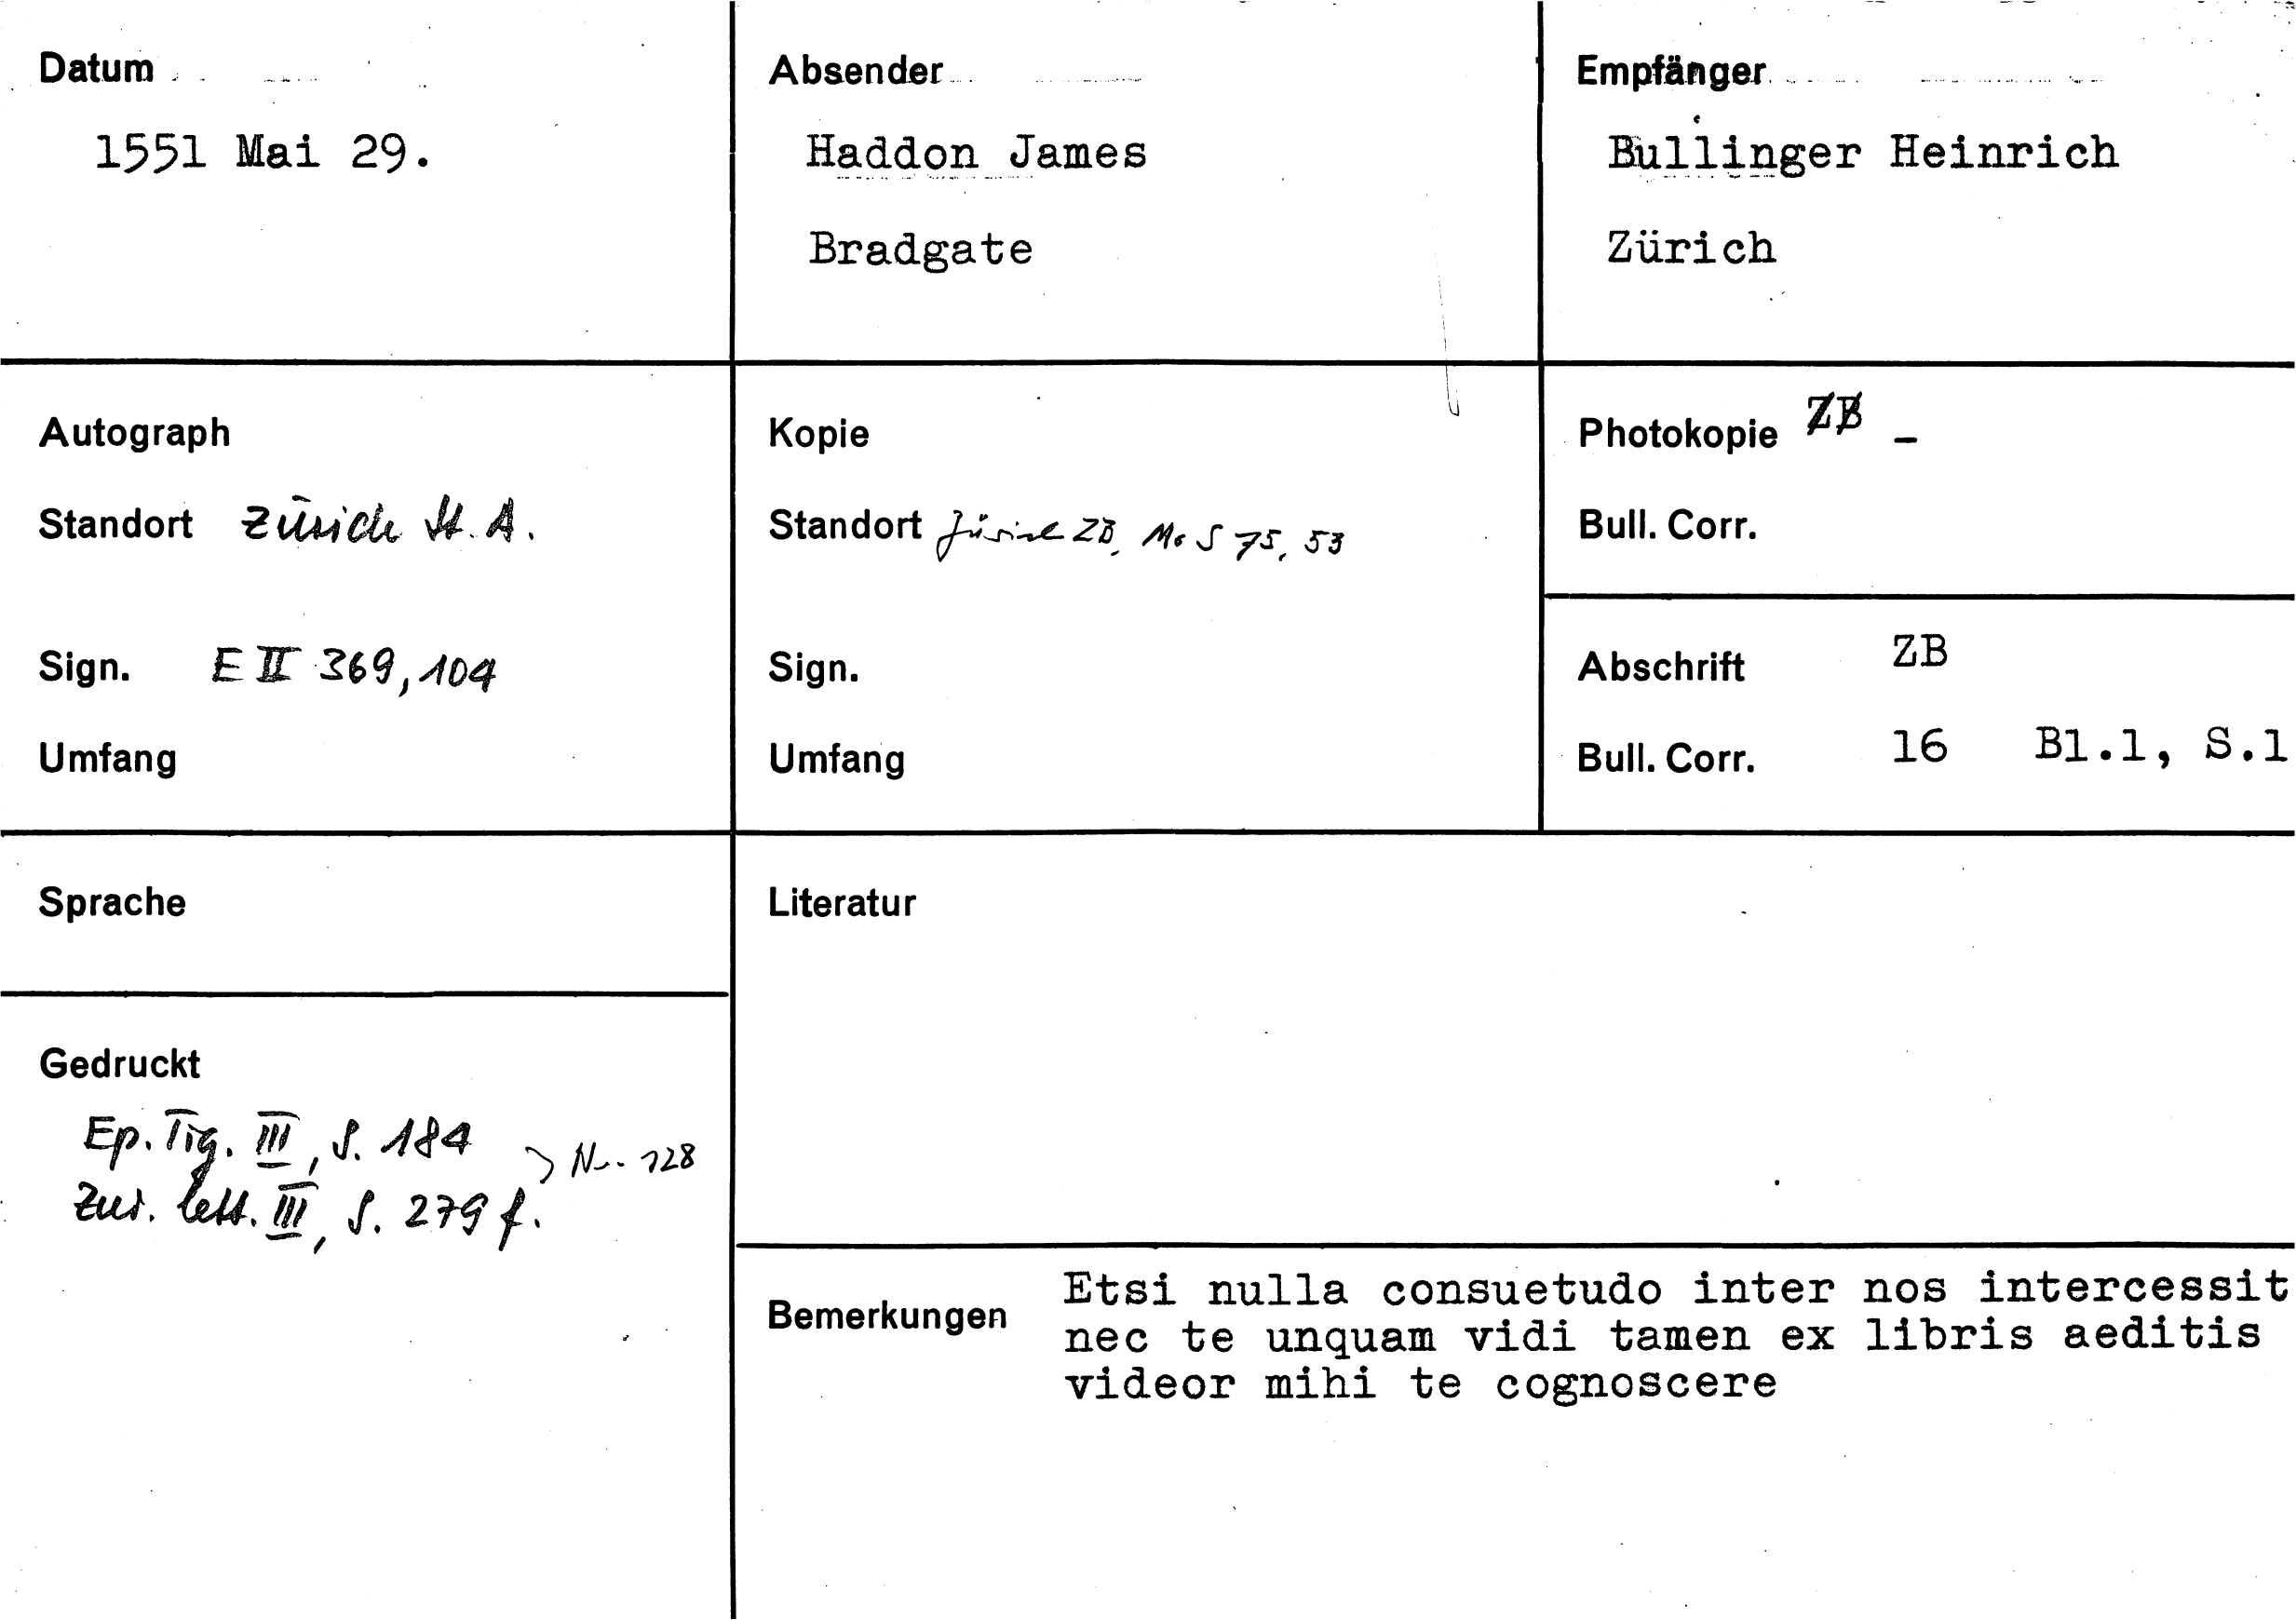 Datum
1551 Mai 29.
Absender
Haddon James
Bradgate
Empfänger
Bullinger Heinrich
Zürich
Autograph
Standort Zürich St. A.
Sign. E II 369, 104
Umfang
Kopie
Standort Zürich ZB, Ms S 75, 53
Sign.
Umfang
Photokopie ZB –
Bull. Corr.
Abschrift ZB
Bull. Corr. 16 Bl.1, S.1
Sprache
Gedruckt
Ep. Tig. III, S. 184
Nr. 128
Zur. lett. III, S. 279 f.
Literatur
Bemerkungen
Etsi nulla consuetudo inter nos intercessit
nec te unquam vidi tamen ex libris aeditis
videor mihi te cognoscere